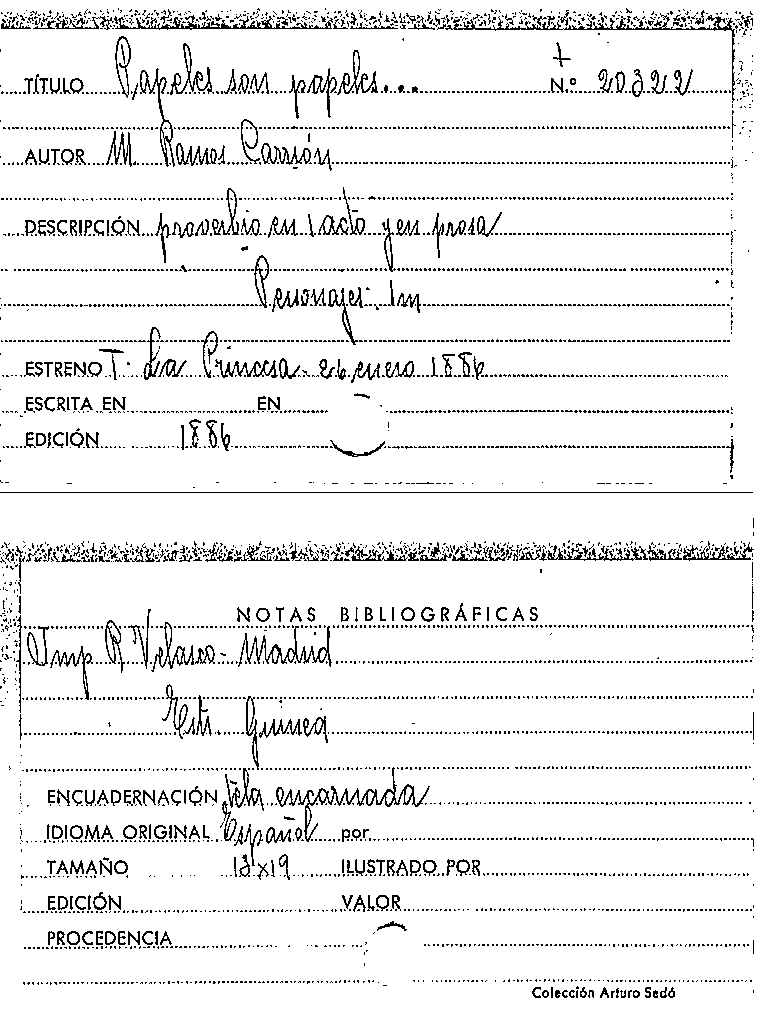 +
TÍTULO Papeles son papeles... N.º 20322
AUTOR M. Ramos Carrión
DESCRIPCIÓN proverbio en 1 acto y en prosa
Personajes: 1m
ESTRENO T. La Princesa - 26 enero 1886
ESCRITA EN EN
EDICIÓN 1886
NOTAS BIBLIOGRÁFICAS
Imp R Velasco - Madrid
Guinea
ENCUADERNACIÓN tela encarnada
IDIOMA ORIGINAL Español por
TAMAÑO 13x19 ILUSTRADO POR
EDICIÓN VALOR
PROCEDENCIA
Colección Arturo Sedó